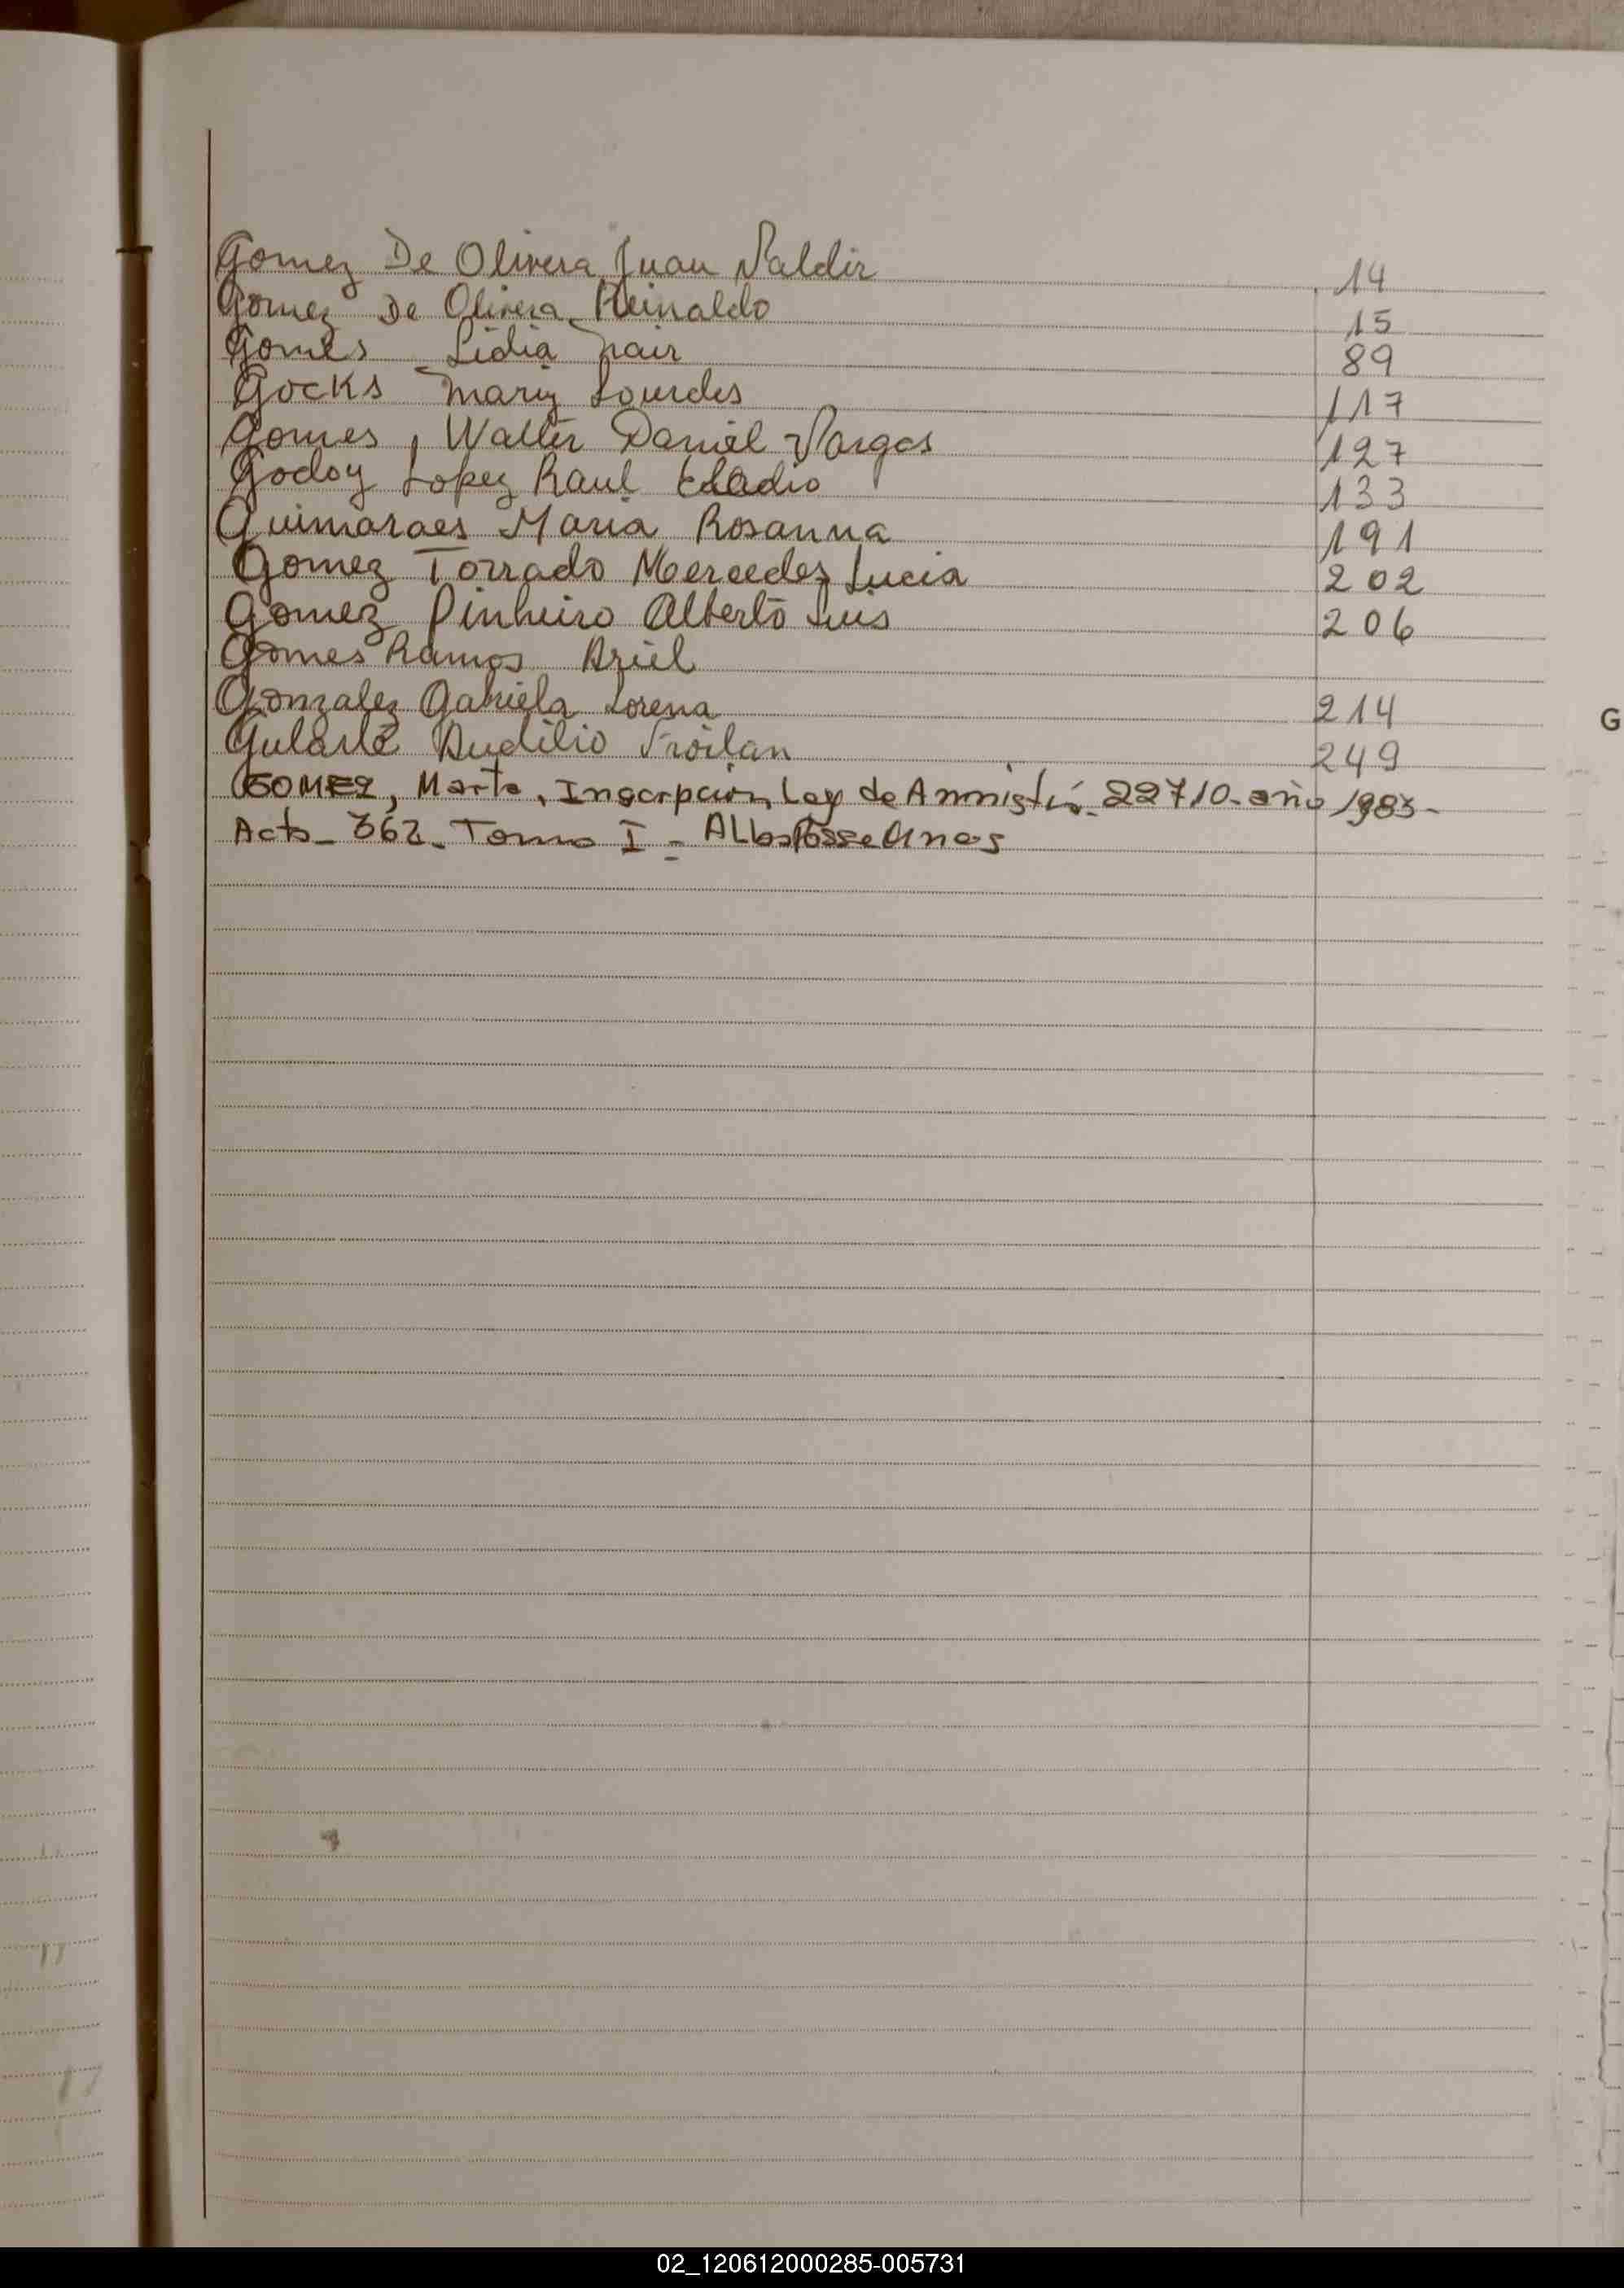 Gomez De Olivera Juan Valdir 14
Gomez De Olivera Reinaldo 15
Gomes Lidia Nair 89
Gocks Mary Lourdes 117
Gomes, Walter Daniel Vargas 127
Godoy Lopez Raul Eladio 133
Guimaraes Maria Rosanna 191
Gomez Torrado Mercedez Lucia 202
Gomez Pinheiro Alberto Luis 206
Gomes Ramos Ariel
Gonzalez Gabriela Lorena 214
G
Gularte Dudilio Froilan 249
GOMEZ, Marta, Inscrpcion Ley de Amnistía. 22710- año 1983-
Acta- 362- Tomo I-
02_120612000285-005731